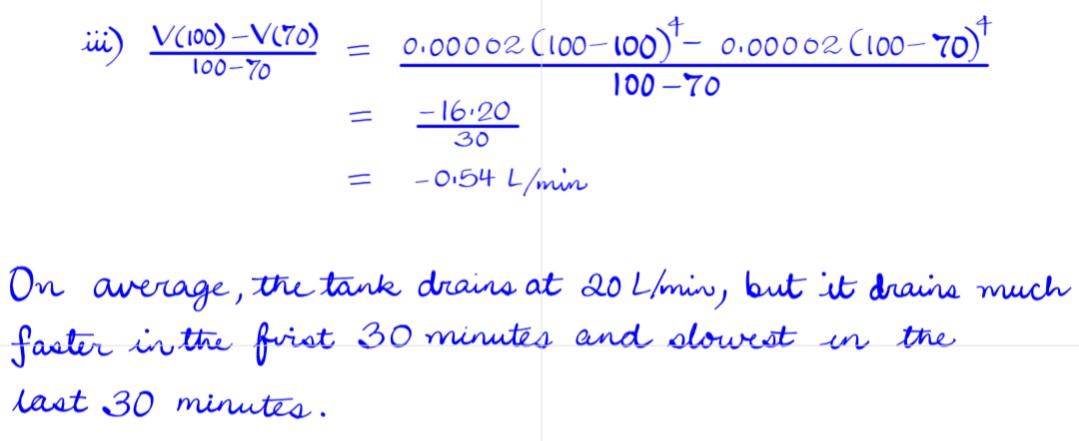 iii) V(100) – V(70) / 100 – 70 = 0.00002 (100 – 100)⁴ – 0.00002 (100 – 70)⁴ / 100 – 70
= – 16.20 / 30
= – 0.54 L/min
On average, the tank drains at 20 L/min, but it drains much
faster in the first 30 minutes and slowest in the
last 30 minutes.